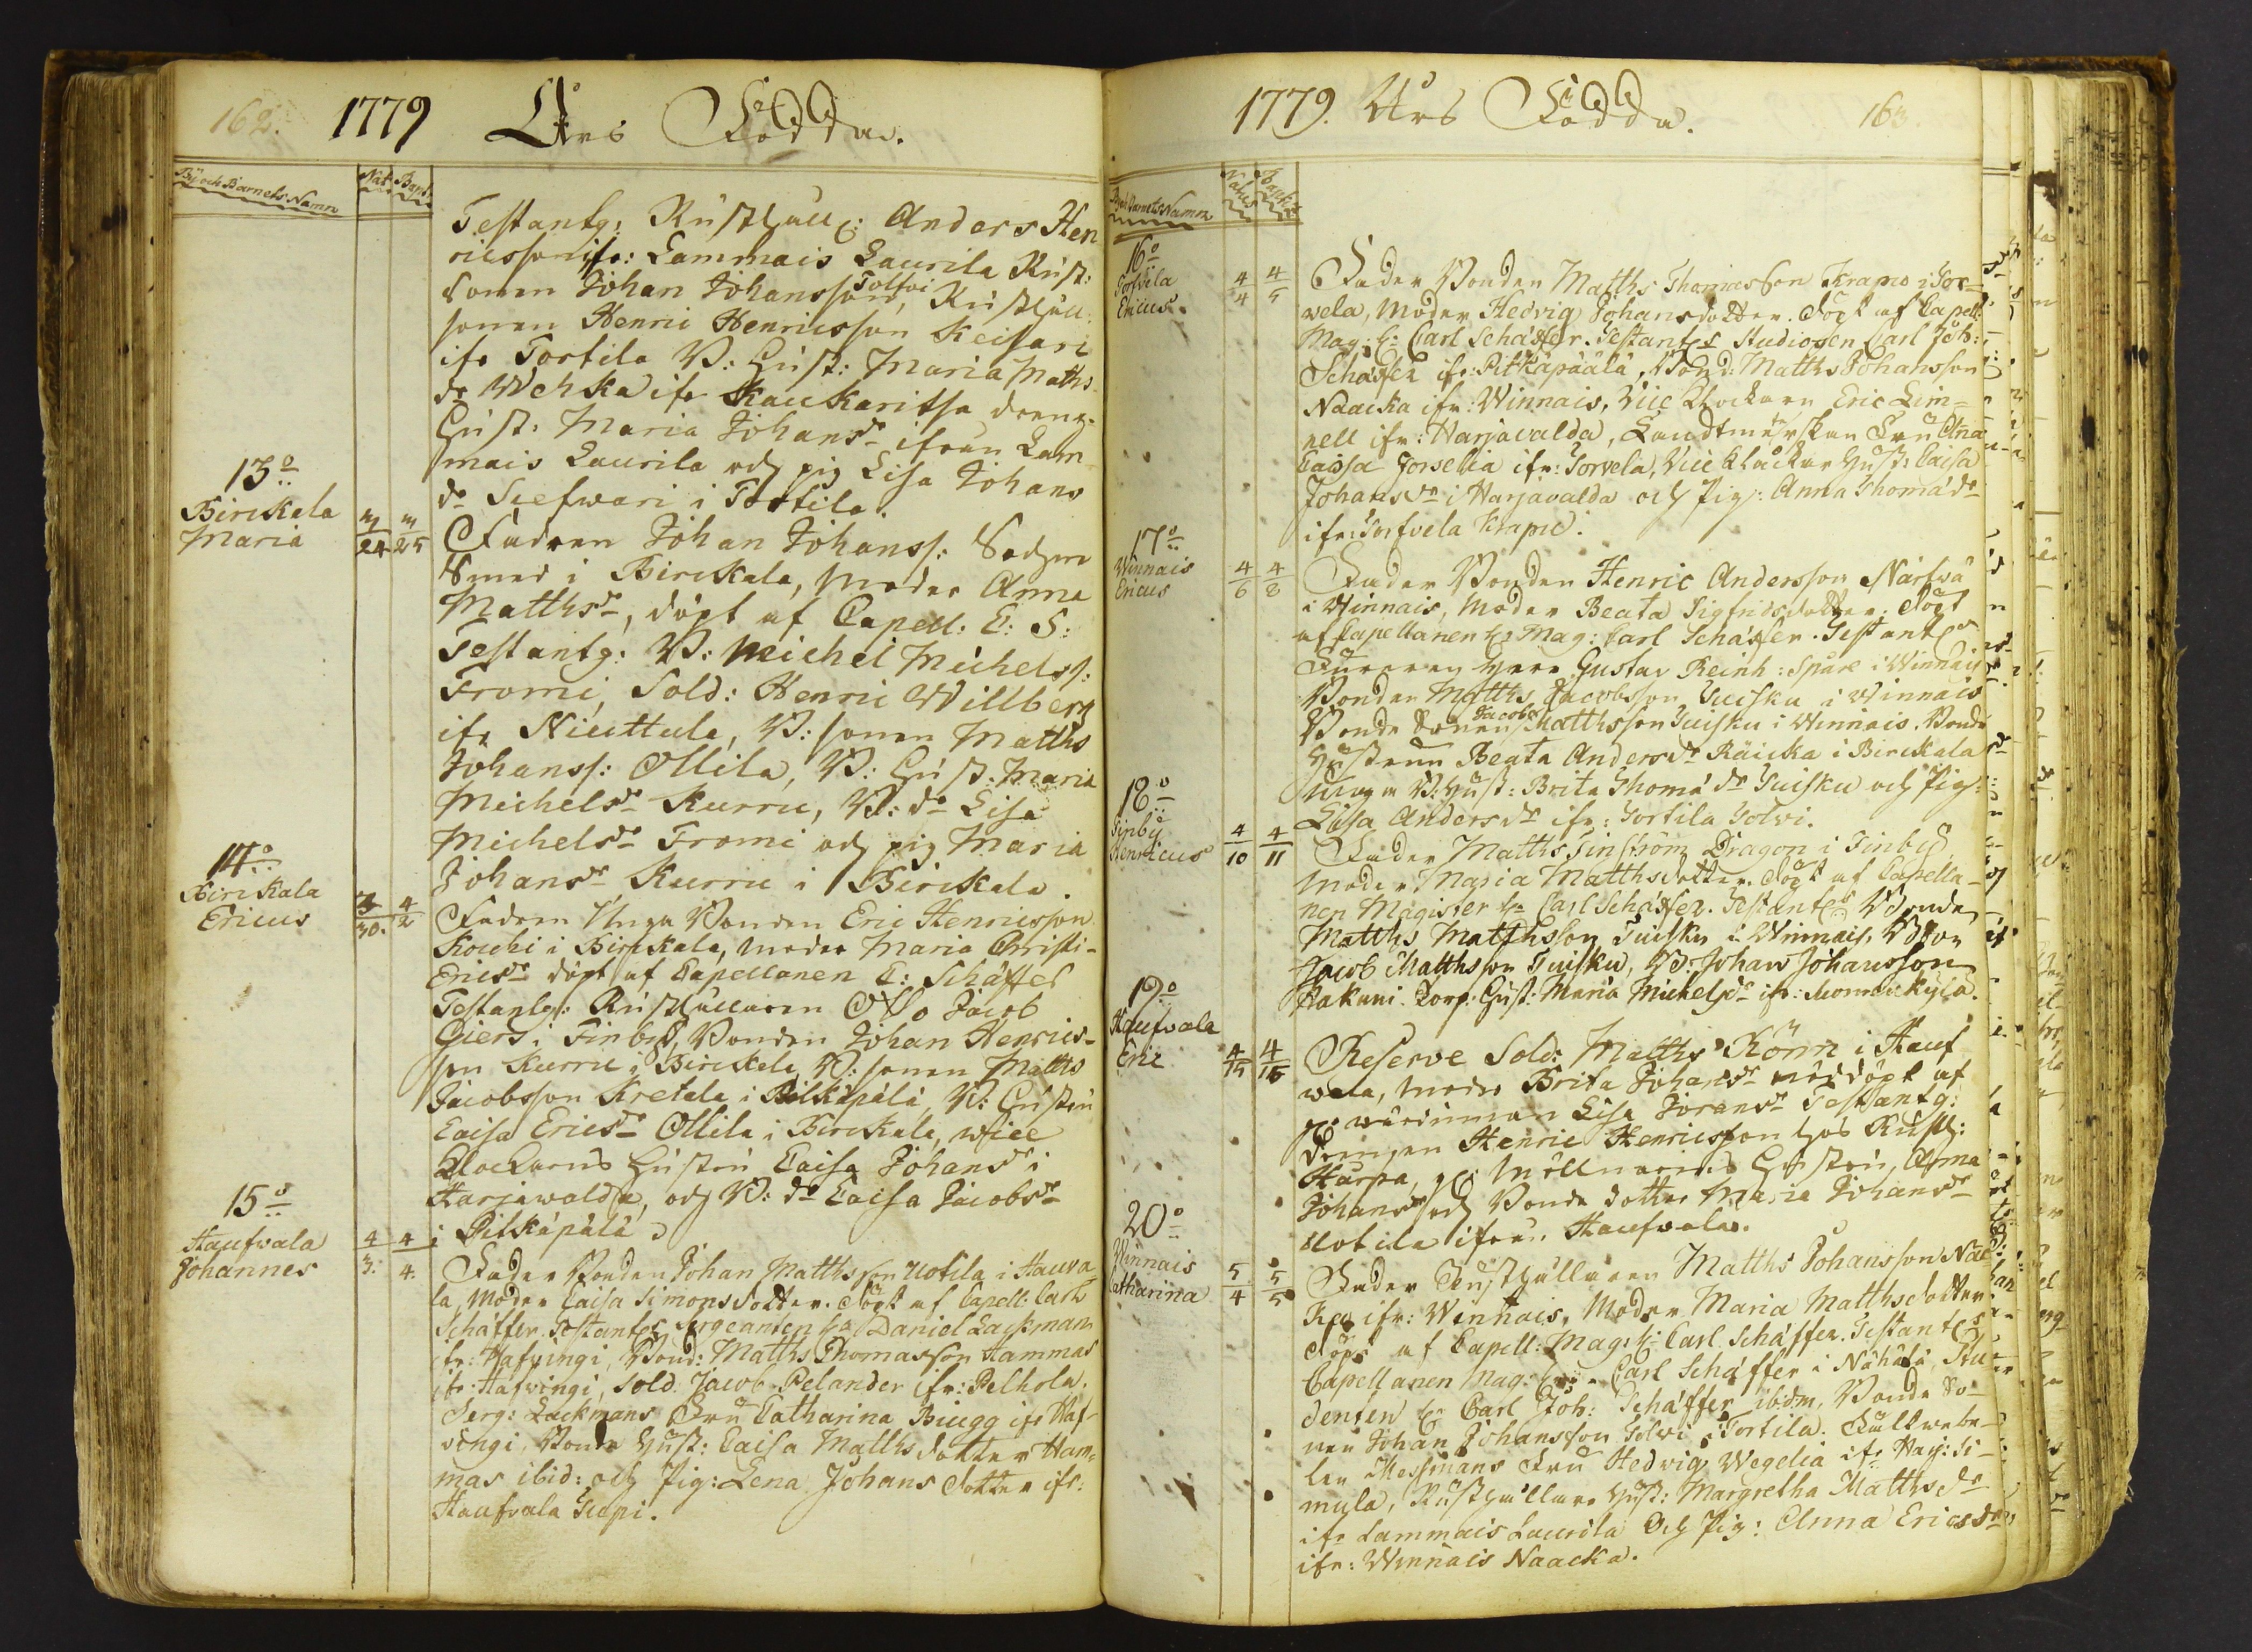 162. 1779 Års Födda.
By och Barnets Namn Nat. Bapt.
Testantg: Rusthåll: Anders Hen
ricsson ifr: Lammais Laurila Rust:
sonen Johan Johansson Tolfvi, Rusthåll
sonen Henric Henricsson Keisari
ifr Tortila B: Hust: Maria Matths
dr Wehka ifr Kaukaritsa dreng.
Hust: Maria Johansdr ifrån Lam
mais Laurila och pig Lisa Johans
dr Seefwari i Tortila.
13o
Birckala
Maria
3/24 3/25
Fadren Johan Johanss: Sockne
Smed i Birckala, Moder Anna
Matthsdr, döpt af Capell: C: S:
Testantg: B: Michel Michelss:
Fromi, Sold: Henric Willberg
ifr Niuttula, B: sonen Matths
Johanss: Ollila, B: Hust: Maria
Michelsdr Kurru, B: dr Lisa
Michelsdr Fromi och pig Maria
Johansdr Kurru i Birckala.
14o
Birckala
Ericus
3/30. 4/2
Fadren Unga Bonden Eric Henricsson
Kouhi i Birckala, Moder Maria Christi-
Ericsdr döpt af Capellanen C: Schäffer
Testantg: Rusthållaren Otto Jacob
Giers i Finby, Bonden Johan Henrics-
son Kurru i Birckala, B: sonen Matths
Jacobsson Kretala i Pitkäpälä, B: Hustru
Caisa Ericsdr Ollila i Birckala, wice
Klockarens Hustru Caisa Johansdr i
Harjawalda, och B: dr Caisa Jacobsdr
i Pitkäpälä
15o
Haufwala
Johannes
4/3. 4/4.
Fader Bonden Johan Matthsson Uotila i Hauva
la, Moder Caisa Simonsdotter. Döpt af Capell: Carl
Schäffer. Testantes Sergeanten hr Daniel Lackman
ifr: Hafvingi, Bond: Matths Thomasson Hammas
ifr: Hafvingi, Sold. Jacob Pelander ifr: Pelhola.
Serg: Lackmans Fru Catharina Biugg ifr Haf-
vingi, Bonde Hust: Caisa Matthsdotter Ham-
mas ibid: och Pig: Lena Johansdotter ifr:
Haufvala Seepi.
1779. Års Födda. 163
By o Barnets Namn Natus Bapt.
16o
Torfvela
Ericus.
4/4 4/5
Fader Bonden Matths Thomasson Krapu i Tor-
wela, Moder Hedvig Johansdotter. Döpt af Capell:
Mag: hr Carl Schäffer. Testantes Studiosen Carl Joh:
Schäffer ifr: Pitkäpäälä, Bond: Matths Johansson
Naacka ifr: Winnais, Vice Klockaren Eric Lim-
nell ifr: Harjavalda, Landtmätskan Fru Anna
Caisa Forselia ifr: Torvela, Vice Klockar Hust: Caisa
Johansdr i Harjavalda och Pig: Anna Thomædr
ifr: Torfvela Krapu.
17o
Winnais
Ericus
4/6 4/8
Fader Bonden Henric Andersson Närfvä
i Winnais, Moder Beata Sigfridsdotter. Döpt
af Capellanen hr Mag: Carl Schäffer. Testantes
Furiren Herr Gustav Reinh: Spåre i Winnais
Bonden Matths Jacobsson Tuisku i Winnais
Bonde Sonen Jacob Matthsson Tuisku i Winnais. Bonde
Hustrun Beata Andersdr Räicka i Birckala
Unga B: Hust: Brita Thomædr Tuisku och Pig:
Lisa Andersdr ifr: Tortila Tolvi.
18o
Finby
Henricus
4/10 4/11
Fader Matths Finström Dragon i Finby
Moder Maria Matthsdotter. Döpt af Capella-
nen Magister hr Carl Schäffer. Testantes Bonden
Matths Matthsson Tuisku i Winnais, B: son
Jacob Matthsson Tuisku, B: Johan Johansson
Hakuni. Torp: Hust: Maria Michelsdr ifr: Suomenkylä.
19o
Haufwala
Eric
4/15 4/16
Reserve Sold: Matths Rönn i Hauf
wala, Moder Brita Johansdr nöddöpt af
Lisa Joransdr Testantg:
Drengen Henric Henricsson hos Rusth:
Harpa, Möllnarens Hustru, Anna
Johansdr och Bonde dotter Maria Johansdr
Uotila ifrån Haufwala.
20o
Winnais
Catharina
5/4 5/5
Fader Rusthållaren Matths Johansson Näc
ka ifr: Winnais, Moder Maria Matthsdotter
Döpt af Capell: Mag: hr Carl Schäffer. Testantes
Capellanen Mag: hr Carl Schäffer i Nähälä, Stu
denten hr Carl Joh: Schäffer ibidm, Bonde So-
nen Johan Johansson Tolvi i Tortila. Fältwebe-
len Messmans Fru Hedwig Wegelia ifr
mula, Rusthållare Hust: Margretha Matthsdr
ifr Lammais Laurila Och Pig: Anna Ericsdr
ifr: Winnais Naacka.